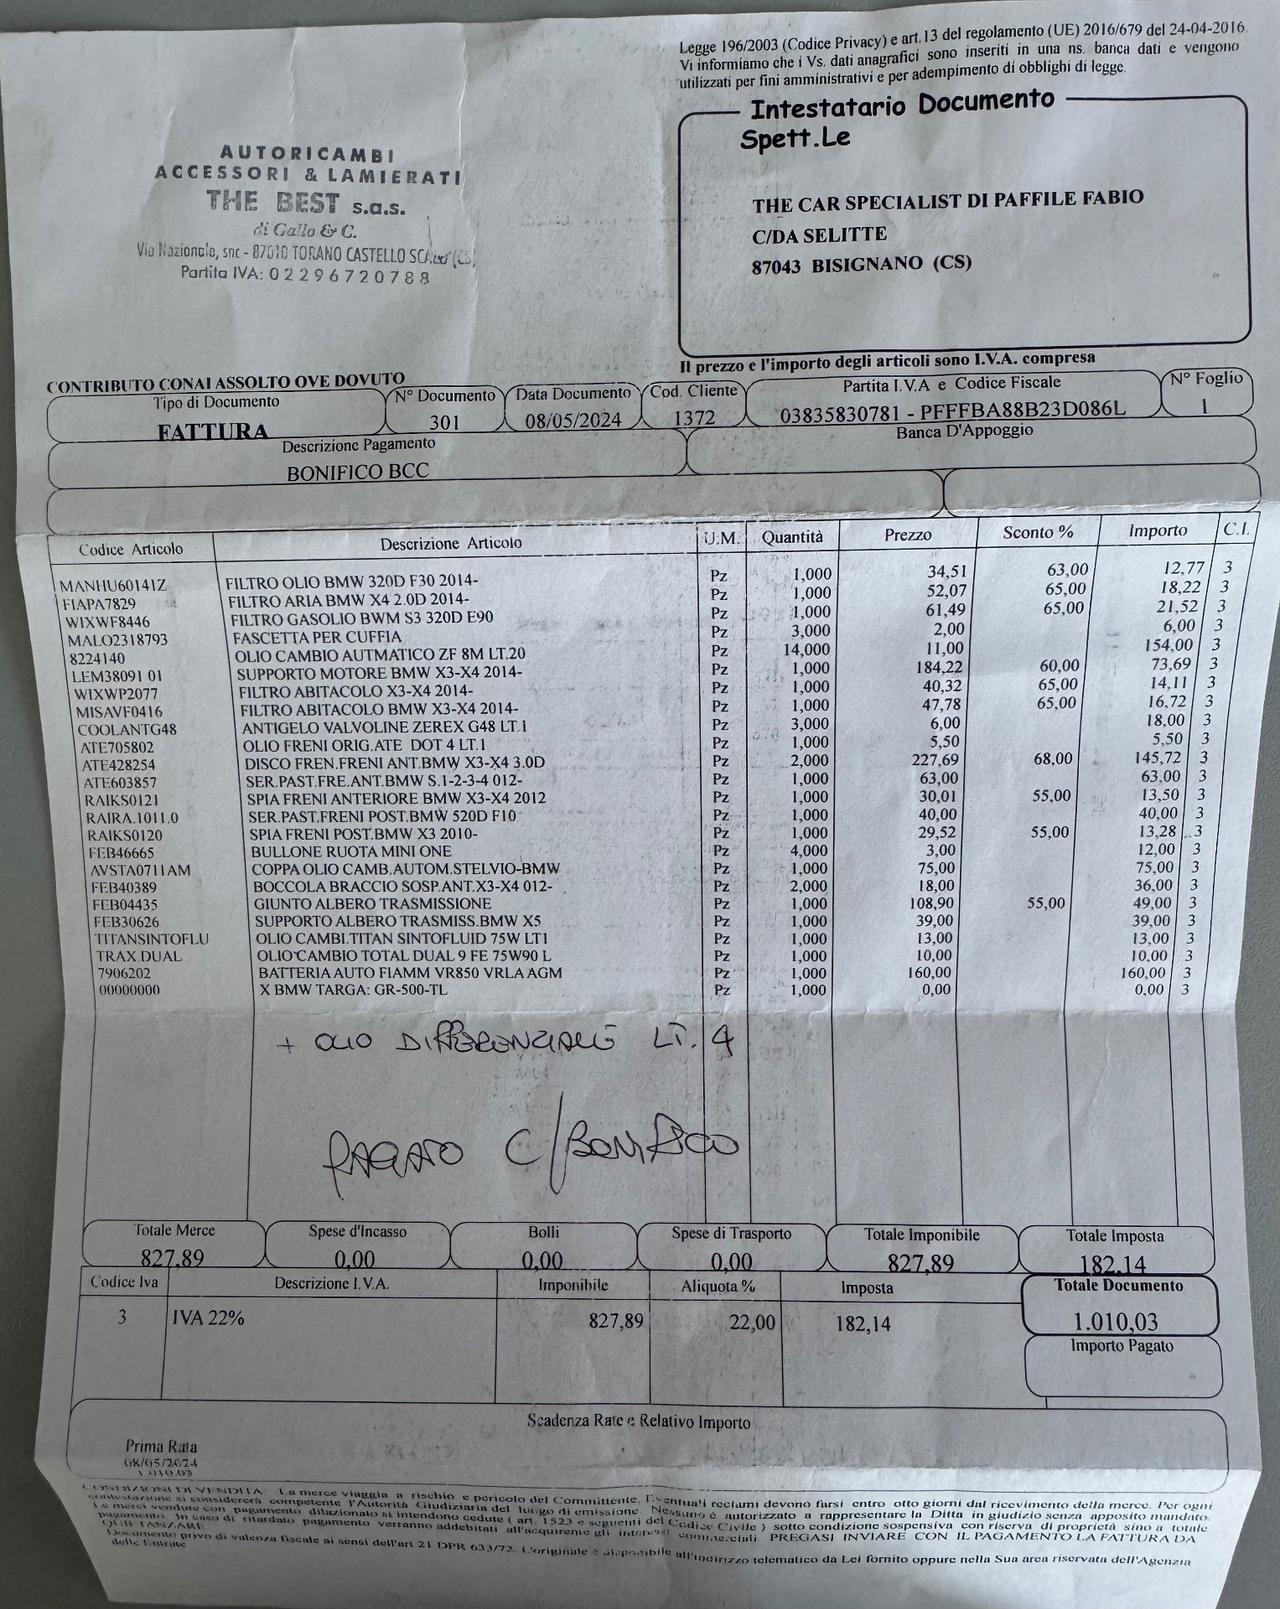 Legge 196/2003 (Codice Privacy) e art.13 del regolamento (UE) 2016/679 del 24-04-2016.
Vi informiamo che i Vs. dati anagrafici sono inseriti in una ns. banca dati e vengono
utilizzati per fini amministrativi e per adempimento di obblighi di legge.
Intestatario Documento
Spett.Le
AUTORICAMBI
ACCESSORI & LAMIERATI
THE BEST s.a.s.
di Gallo & C.
Via Nazionale, snc - 87010 TORANO CASTELLO SCALO (CS)
Partita IVA: 02296720788
THE CAR SPECIALIST DI PAFFILE FABIO
C/DA SELITTE
87043 BISIGNANO (CS)
Il prezzo e l'importo degli articoli sono I.V.A. compresa
CONTRIBUTO CONAI ASSOLTO OVE DOVUTO
Tipo di Documento N° Documento Data Documento Cod. Cliente Partita I.V.A e Codice Fiscale N° Foglio
FATTURA 301 08/05/2024 1372 03835830781 - PFFFBA88B23D086L 1
Descrizione Pagamento Banca D'Appoggio
BONIFICO BCC
Codice Articolo Descrizione Articolo U.M. Quantità Prezzo Sconto % Importo C.I.
MANHU60141Z FILTRO OLIO BMW 320D F30 2014- Pz 1,000 34,51 63,00 12,77 3
FIAPA7829 FILTRO ARIA BMW X4 2.0D 2014- Pz 1,000 52,07 65,00 18,22 3
WIXWF8446 FILTRO GASOLIO BWM S3 320D E90 Pz 1,000 61,49 65,00 21,52 3
MALO2318793 FASCETTA PER CUFFIA Pz 3,000 2,00 6,00 3
8224140 OLIO CAMBIO AUTMATICO ZF 8M LT.20 Pz 14,000 11,00 154,00 3
LEM38091 01 SUPPORTO MOTORE BMW X3-X4 2014- Pz 1,000 184,22 60,00 73,69 3
WIXWP2077 FILTRO ABITACOLO X3-X4 2014- Pz 1,000 40,32 65,00 14,11 3
MISAVF0416 FILTRO ABITACOLO BMW X3-X4 2014- Pz 1,000 47,78 65,00 16,72 3
COOLANTG48 ANTIGELO VALVOLINE ZEREX G48 LT.1 Pz 3,000 6,00 18,00 3
ATE705802 OLIO FRENI ORIG.ATE DOT 4 LT.1 Pz 1,000 5,50 5,50 3
ATE428254 DISCO FREN.FRENI ANT.BMW X3-X4 3.0D Pz 2,000 227,69 68,00 145,72 3
ATE603857 SER.PAST.FRE.ANT.BMW S.1-2-3-4 012- Pz 1,000 63,00 63,00 3
RAIKS0121 SPIA FRENI ANTERIORE BMW X3-X4 2012 Pz 1,000 30,01 55,00 13,50 3
RAIRA.1011.0 SER.PAST.FRENI POST.BMW 520D F10 Pz 1,000 40,00 40,00 3
RAIKS0120 SPIA FRENI POST.BMW X3 2010- Pz 1,000 29,52 55,00 13,28 3
FEB46665 BULLONE RUOTA MINI ONE Pz 4,000 3,00 12,00 3
AVSTA0711AM COPPA OLIO CAMB.AUTOM.STELVIO-BMW Pz 1,000 75,00 75,00 3
FEB40389 BOCCOLA BRACCIO SOSP.ANT.X3-X4 012- Pz 2,000 18,00 36,00 3
FEB04435 GIUNTO ALBERO TRASMISSIONE Pz 1,000 108,90 55,00 49,00 3
FEB30626 SUPPORTO ALBERO TRASMISS.BMW X5 Pz 1,000 39,00 39,00 3
TITANSINTOFLU OLIO CAMBI.TITAN SINTOFLUID 75W LT1 Pz 1,000 13,00 13,00 3
TRAX.DUAL OLIO CAMBIO TOTAL DUAL 9 FE 75W90 L Pz 1,000 10,00 10,00 3
7906202 BATTERIA AUTO FIAMM VR850 VRLA AGM Pz 1,000 160,00 160,00 3
00000000 X BMW TARGA: GR-500-TL Pz 1,000 0,00 0,00 3
+ OLIO DIFFERENZIALE LT. 4
PAGATO C/BONIFICO
Totale Merce Spese d'Incasso Bolli Spese di Trasporto Totale Imponibile Totale Imposta
827,89 0,00 0,00 0,00 827,89 182,14
Codice Iva Descrizione I.V.A. Imponibile Aliquota % Imposta Totale Documento
3 IVA 22% 827,89 22,00 182,14 1.010,03
Importo Pagato
Scadenza Rate e Relativo Importo
Prima Rata
08/05/2024
1.010,03
CONDIZIONI DI VENDITA: La merce viaggia a rischio e pericolo del Committente. Eventuali reclami devono farsi entro otto giorni dal ricevimento della merce. Per ogni
contestazione si considererà competente l'Autorità Giudiziaria del luogo di emissione. Nessuno è autorizzato a rappresentare la Ditta in giudizio senza apposito mandato.
Le merci vendute con pagamento dilazionato si intendono cedute ( art. 1523 e seguenti del Codice Civile ) sotto condizione sospensiva con riserva di proprietà sino a totale
pagamento. In caso di ritardato pagamento verranno addebitati all'acquirente gli interessi commerciali. PREGASI INVIARE CON IL PAGAMENTO LA FATTURA DA
QUIETANZARE.
Documento privo di valenza fiscale ai sensi dell'art 21 DPR 633/72. L'originale è disponibile all'indirizzo telematico da Lei fornito oppure nella Sua area riservata dell'Agenzia
delle Entrate